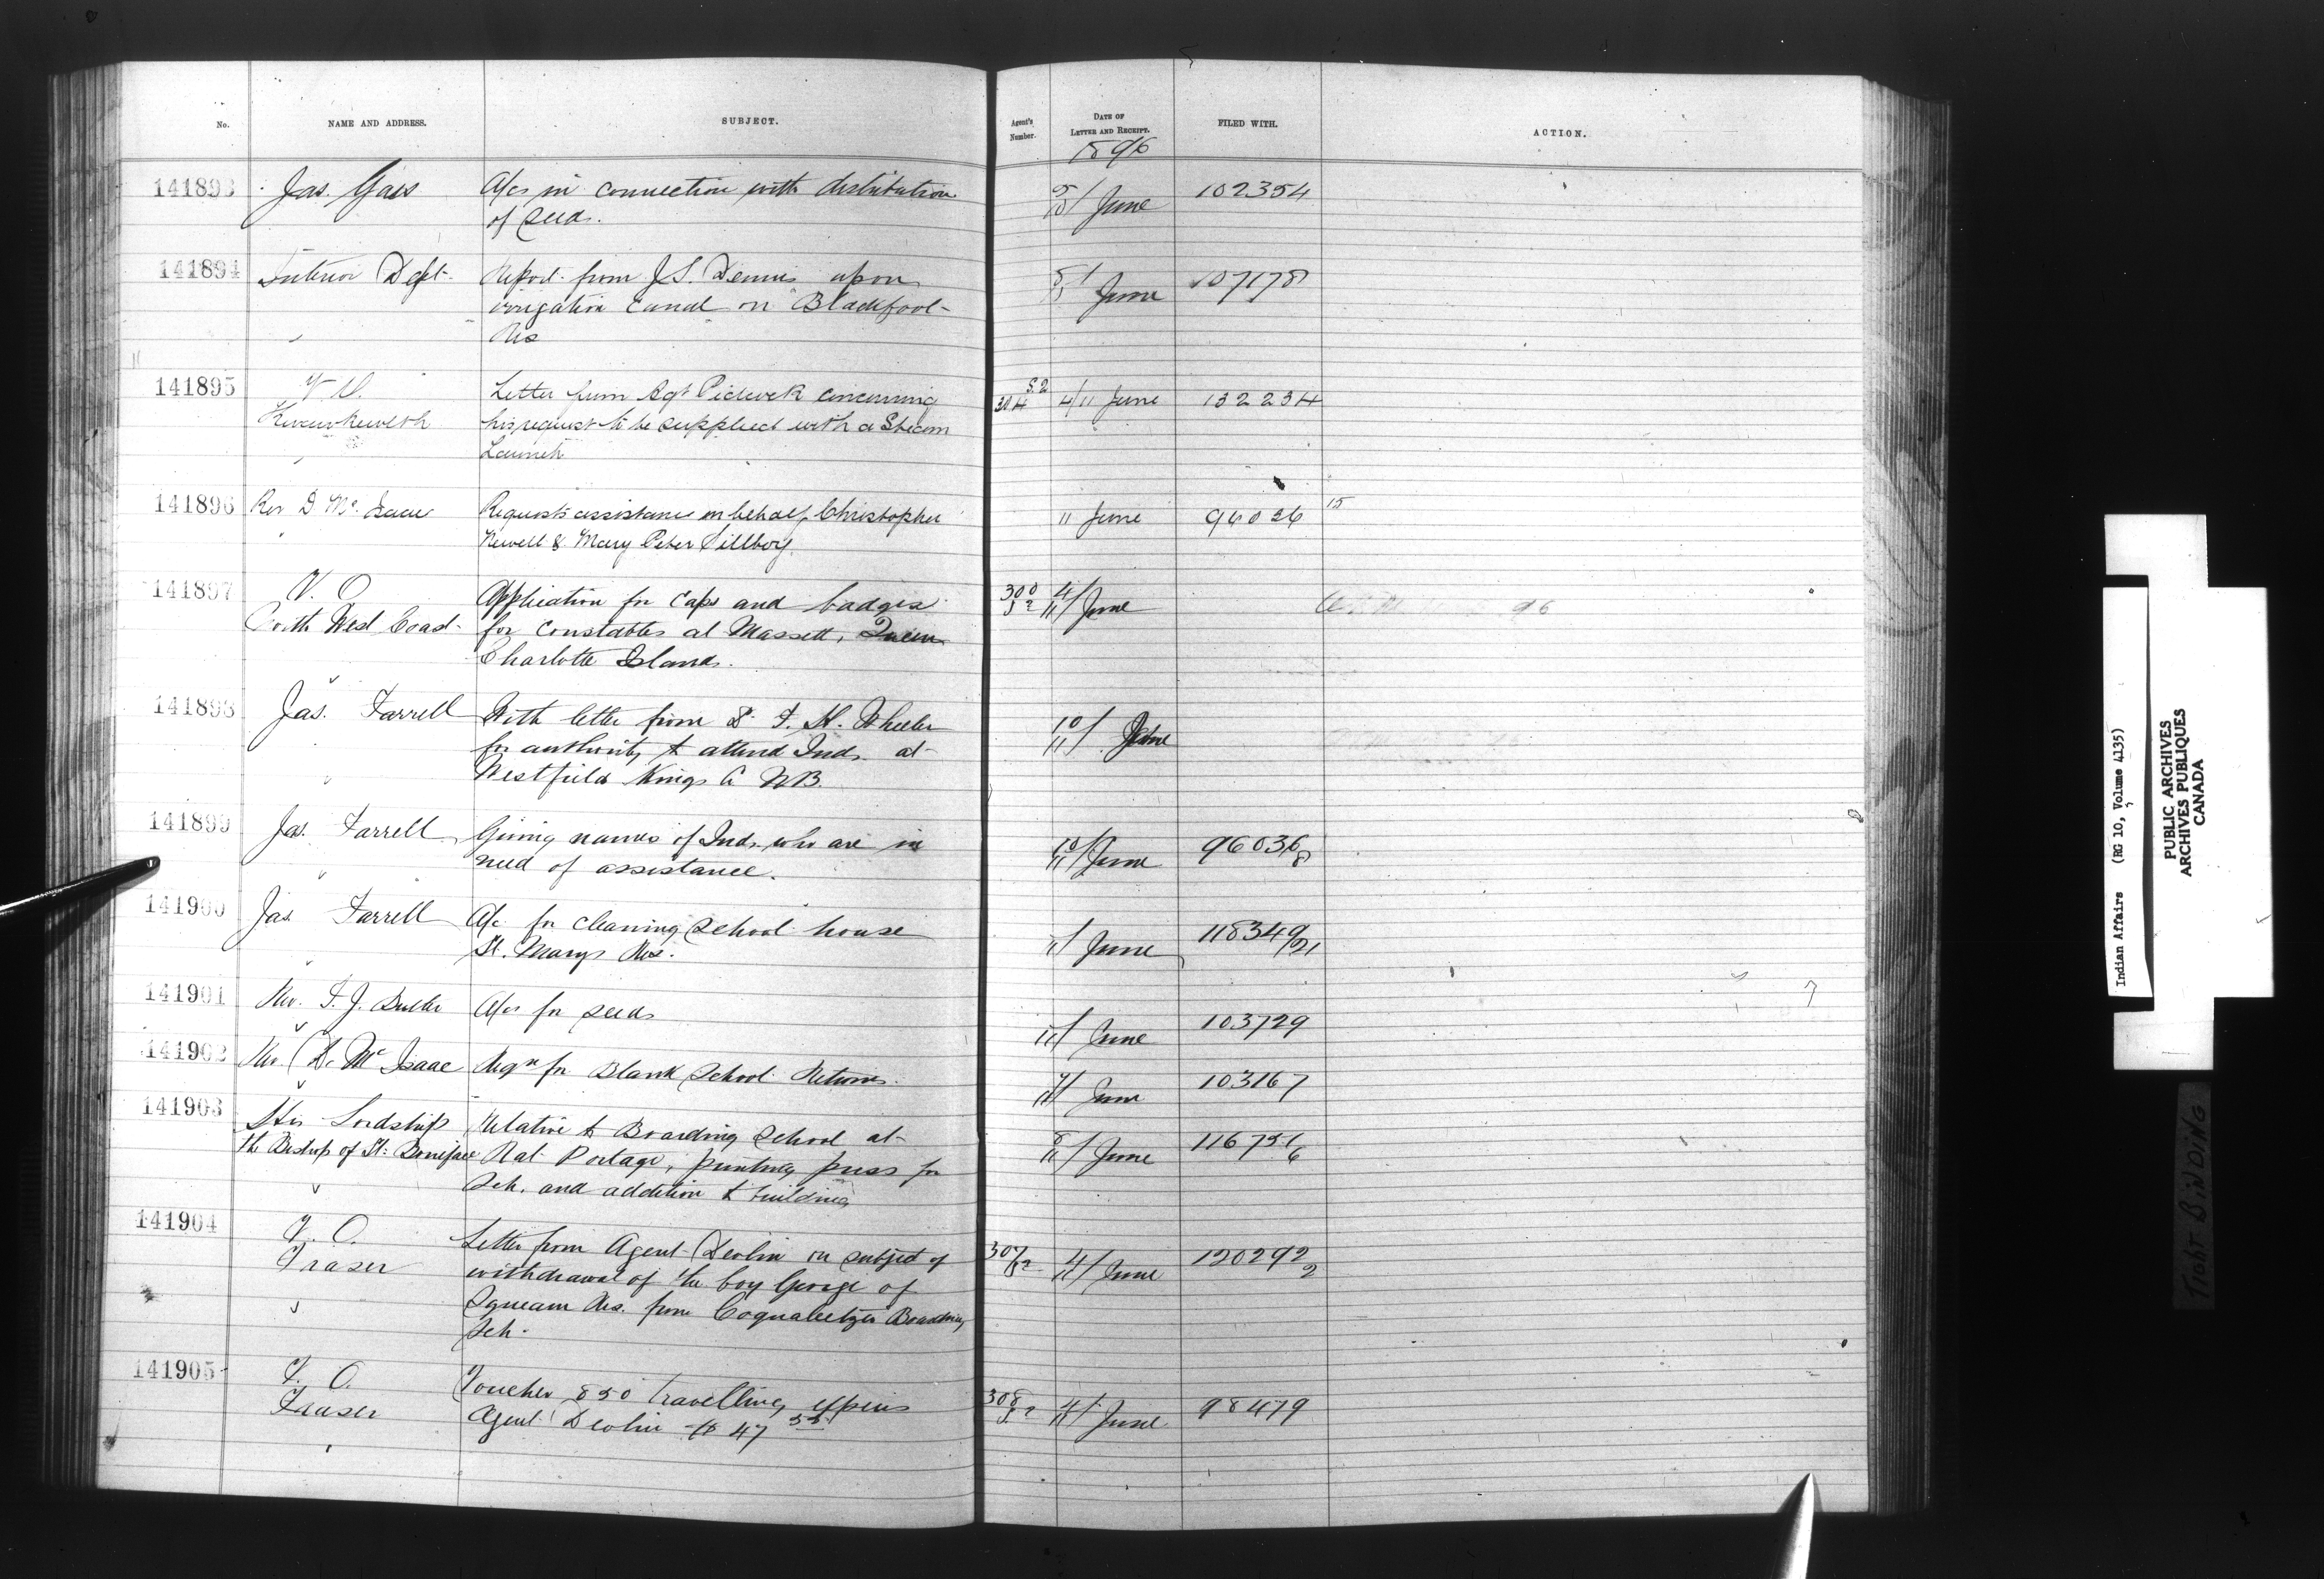 No.
NAME AND ADDRESS.
SUBJECT.
Agent's Number.
DATE OF LETTER AND RECEIPT.
FILED WITH.
ACTION.
1896
141893 Jas. A/cs in connection with distribution
of seeds.
June 102354
141894 Interior Dept. Report from J.S. Dennis upon
irrigation canal on Blackfoot
Res
June 107178
141895 V. O. Letter from Agt Pidcock concerning
his request to be supplied with a Steam
Launch
4/11 June 132234
141896 Rev D. McIsaac Requests assistance on behalf Christopher
Newell & Mary Peter Pillboy
11 June 96026 15
141897 V. O. Application for Caps and badges
North West Coast for Constables at Massett, Queen
Charlotte Islands.
300 4/11 June
141898 Jas. Farrell With letter from Dr. F. H. Wheeler
for authority to attend Inds. at
Westfield Kings Co NB.
10/11 June
141899 Jas. Farrell Giving names of Inds. who are in
need of assistance.
10/11 June 96036/8
141900 Jas. Farrell A/c for cleaning School house
St. Marys Res.
June 118349/21
141901 Rev. A/cs for seeds
June 103729
141902 Rev. D. McIsaac Reqn for Blank School Returns.
June 103167
141903 His Lordship Relative to Boarding School at
the Bishop of St. Boniface Rat Portage, printing press for
Sch. and addition to building
8/11 June
141904 V. O. Letter from Agent Devlin on subject of
Fraser withdrawal of the boy George of
Res. from Coqualeetza Boarding
Sch.
307 4/11 June 120292/2
141905 V. O. Voucher 850 travelling expens
Fraser Agent Devlin $47
308 4/11 June 98479
Indian Affairs (RG 10, Volume 4135)
PUBLIC ARCHIVES
ARCHIVES PUBLIQUES
CANADA
TIGHT BINDING